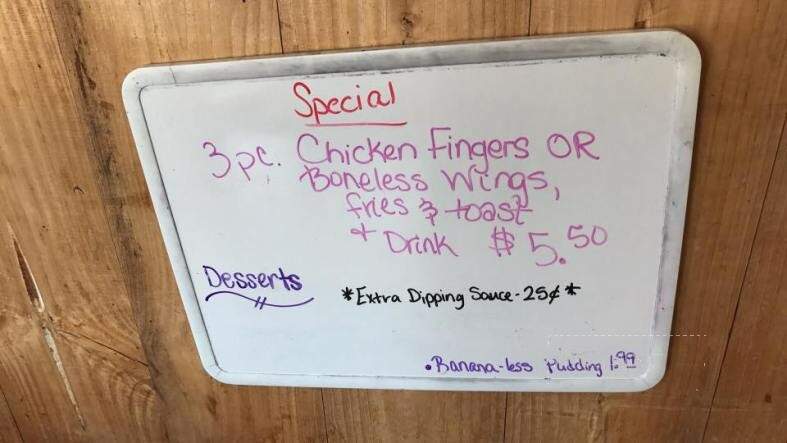 Special
3 pc. Chicken Fingers OR
Boneless Wings,
fries & toast
+ Drink $5.50
Desserts
*Extra Dipping Sauce - 25¢*
• Banana-less Pudding 1.99